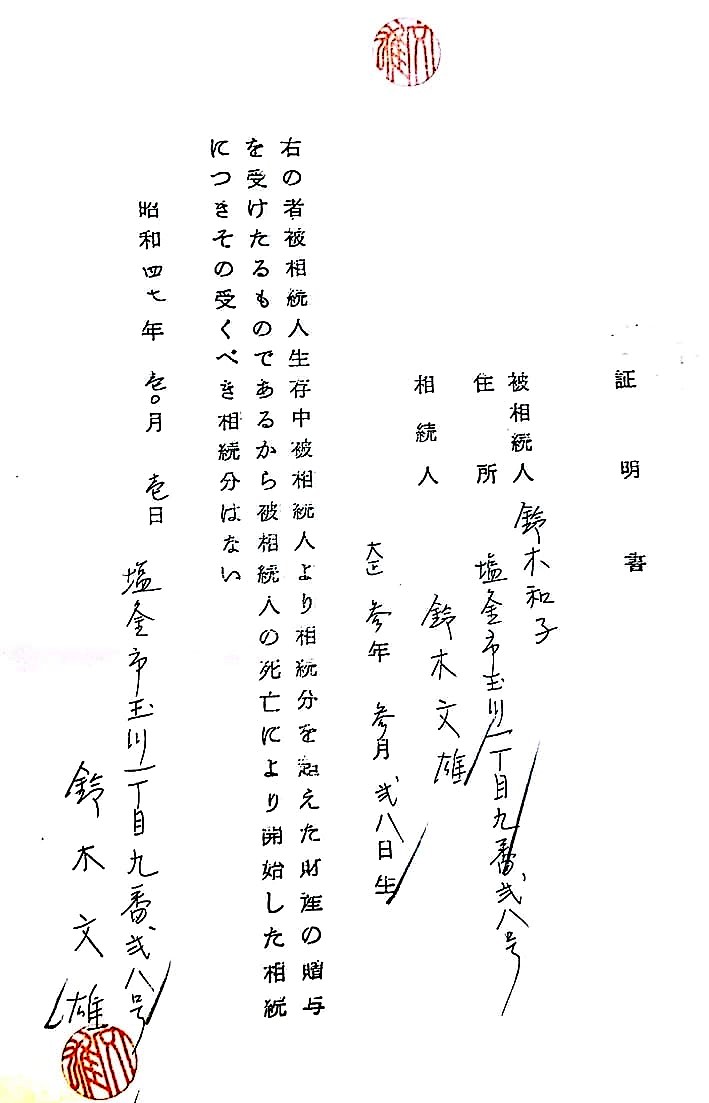 証明書
被相続人 鈴木和子
住所 塩釜市玉川一丁目九番弐八号
相続人 鈴木文雄
大正参年参月弐八日生
右の者被相続人生存中被相続人より相続分を超えた財産の贈与
を受けたるものであるから被相続人の死亡により開始した相続
につきその受くべき相続分はない
昭和四七年壱〇月壱日
塩釜市玉川一丁目九番弐八号
鈴木文雄
文雄
文雄